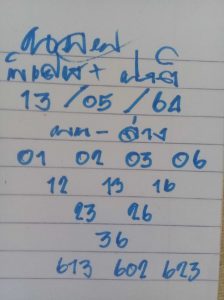 13/05/64
บน-ล่าง
01 02 03 06
12 13 16
23 26
36
613 602 623